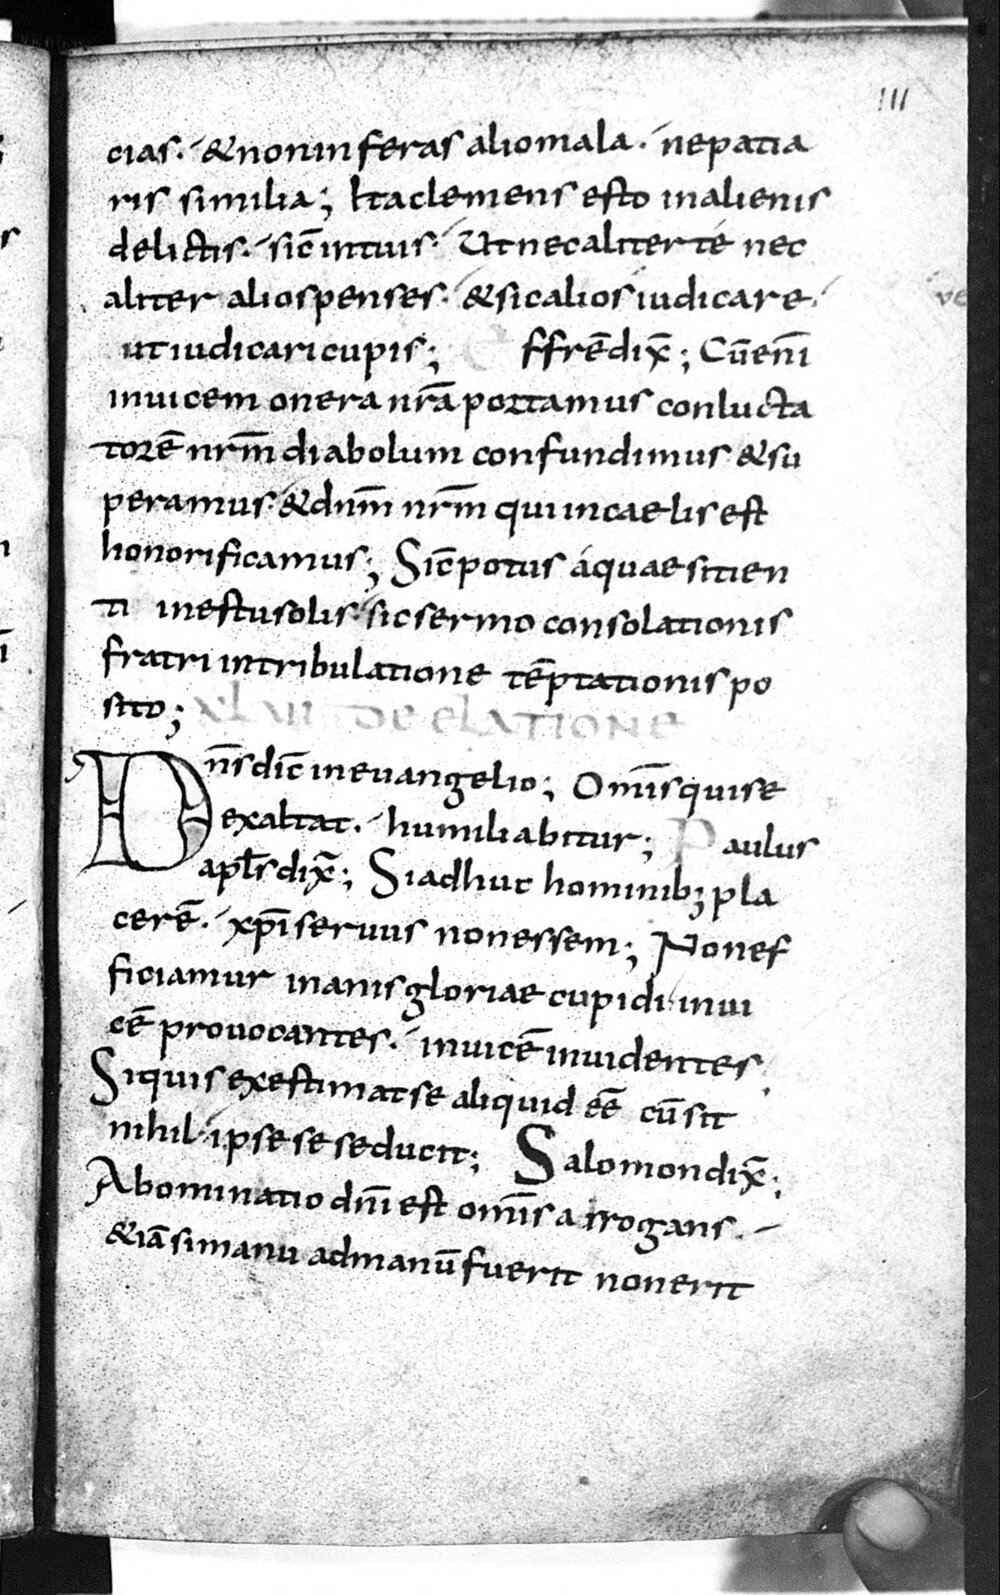 111
cias. & non inferas alio mala. ne patia
ris similia; Ita clemens esto in alienis
delictis. sic̄ in tuis. Ut nec aliter te nec
aliter alios penses. & sic alios iudicare.
ut iudicari cupis; Effrē dix̄; Cū enī
invicem onera nr̄a portamus conlucta
torē nr̄m diabolum confundimus & su
peramus. & dnm̄ nr̄m qui in caelis est
honorificamus; Sic̄ potus aquae sitien
ti in estu solis. sic sermo consolationis
fratri in tribulatione tēptationis po
sito; XLVII DE ELATIONE
Dn̄s dic̄ in evangelio; Omīs qui se
exaltat. humiliabitur; Paulus
apl̄s dix̄; Si adhuc hominib; pla
cerē. xp̄i servus non essem; Non ef
ficiamur inanis gloriae cupidi invi
cē provocantes. invicē invidentes
Si quis exestimat se aliquid eē cū sit
nihil. ipse se seducit; Salomon dix̄;
Abominatio dn̄i est omīs arrogans.
& iā si manu ad manū fuerit non erit